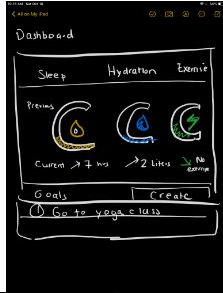 All on My iPad
Dashboard
Sleep Hydration Exercise
Previous
Current → 7 hrs → 2 Liters ↘ No
exercise
Goals Create
① Go to yoga class